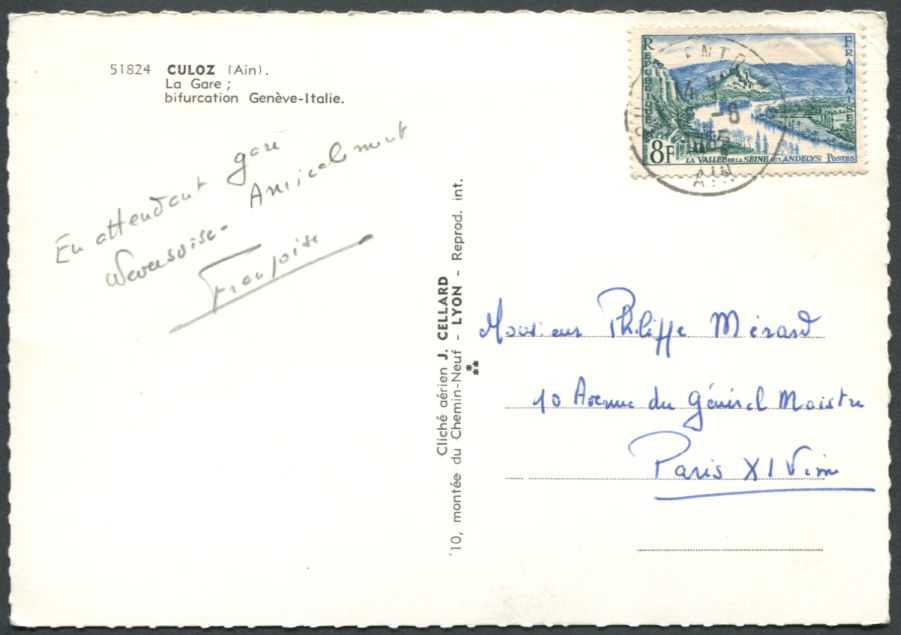 51824 CULOZ (Ain).
La Gare ;
bifurcation Genève-Italie.
En attendant gare
Amicalement
Françoise
REPUBLIQUE FRANÇAISE
8F
LA VALLÉE DE LA SEINE AUX ANDELYS POSTES
AIN
Cliché aérien J. CELLARD
10, montée du Chemin-Neuf - LYON - Reprod. int.
Monsieur Philippe Mérard
10 Avenue du Général Maistre
Paris XIVème